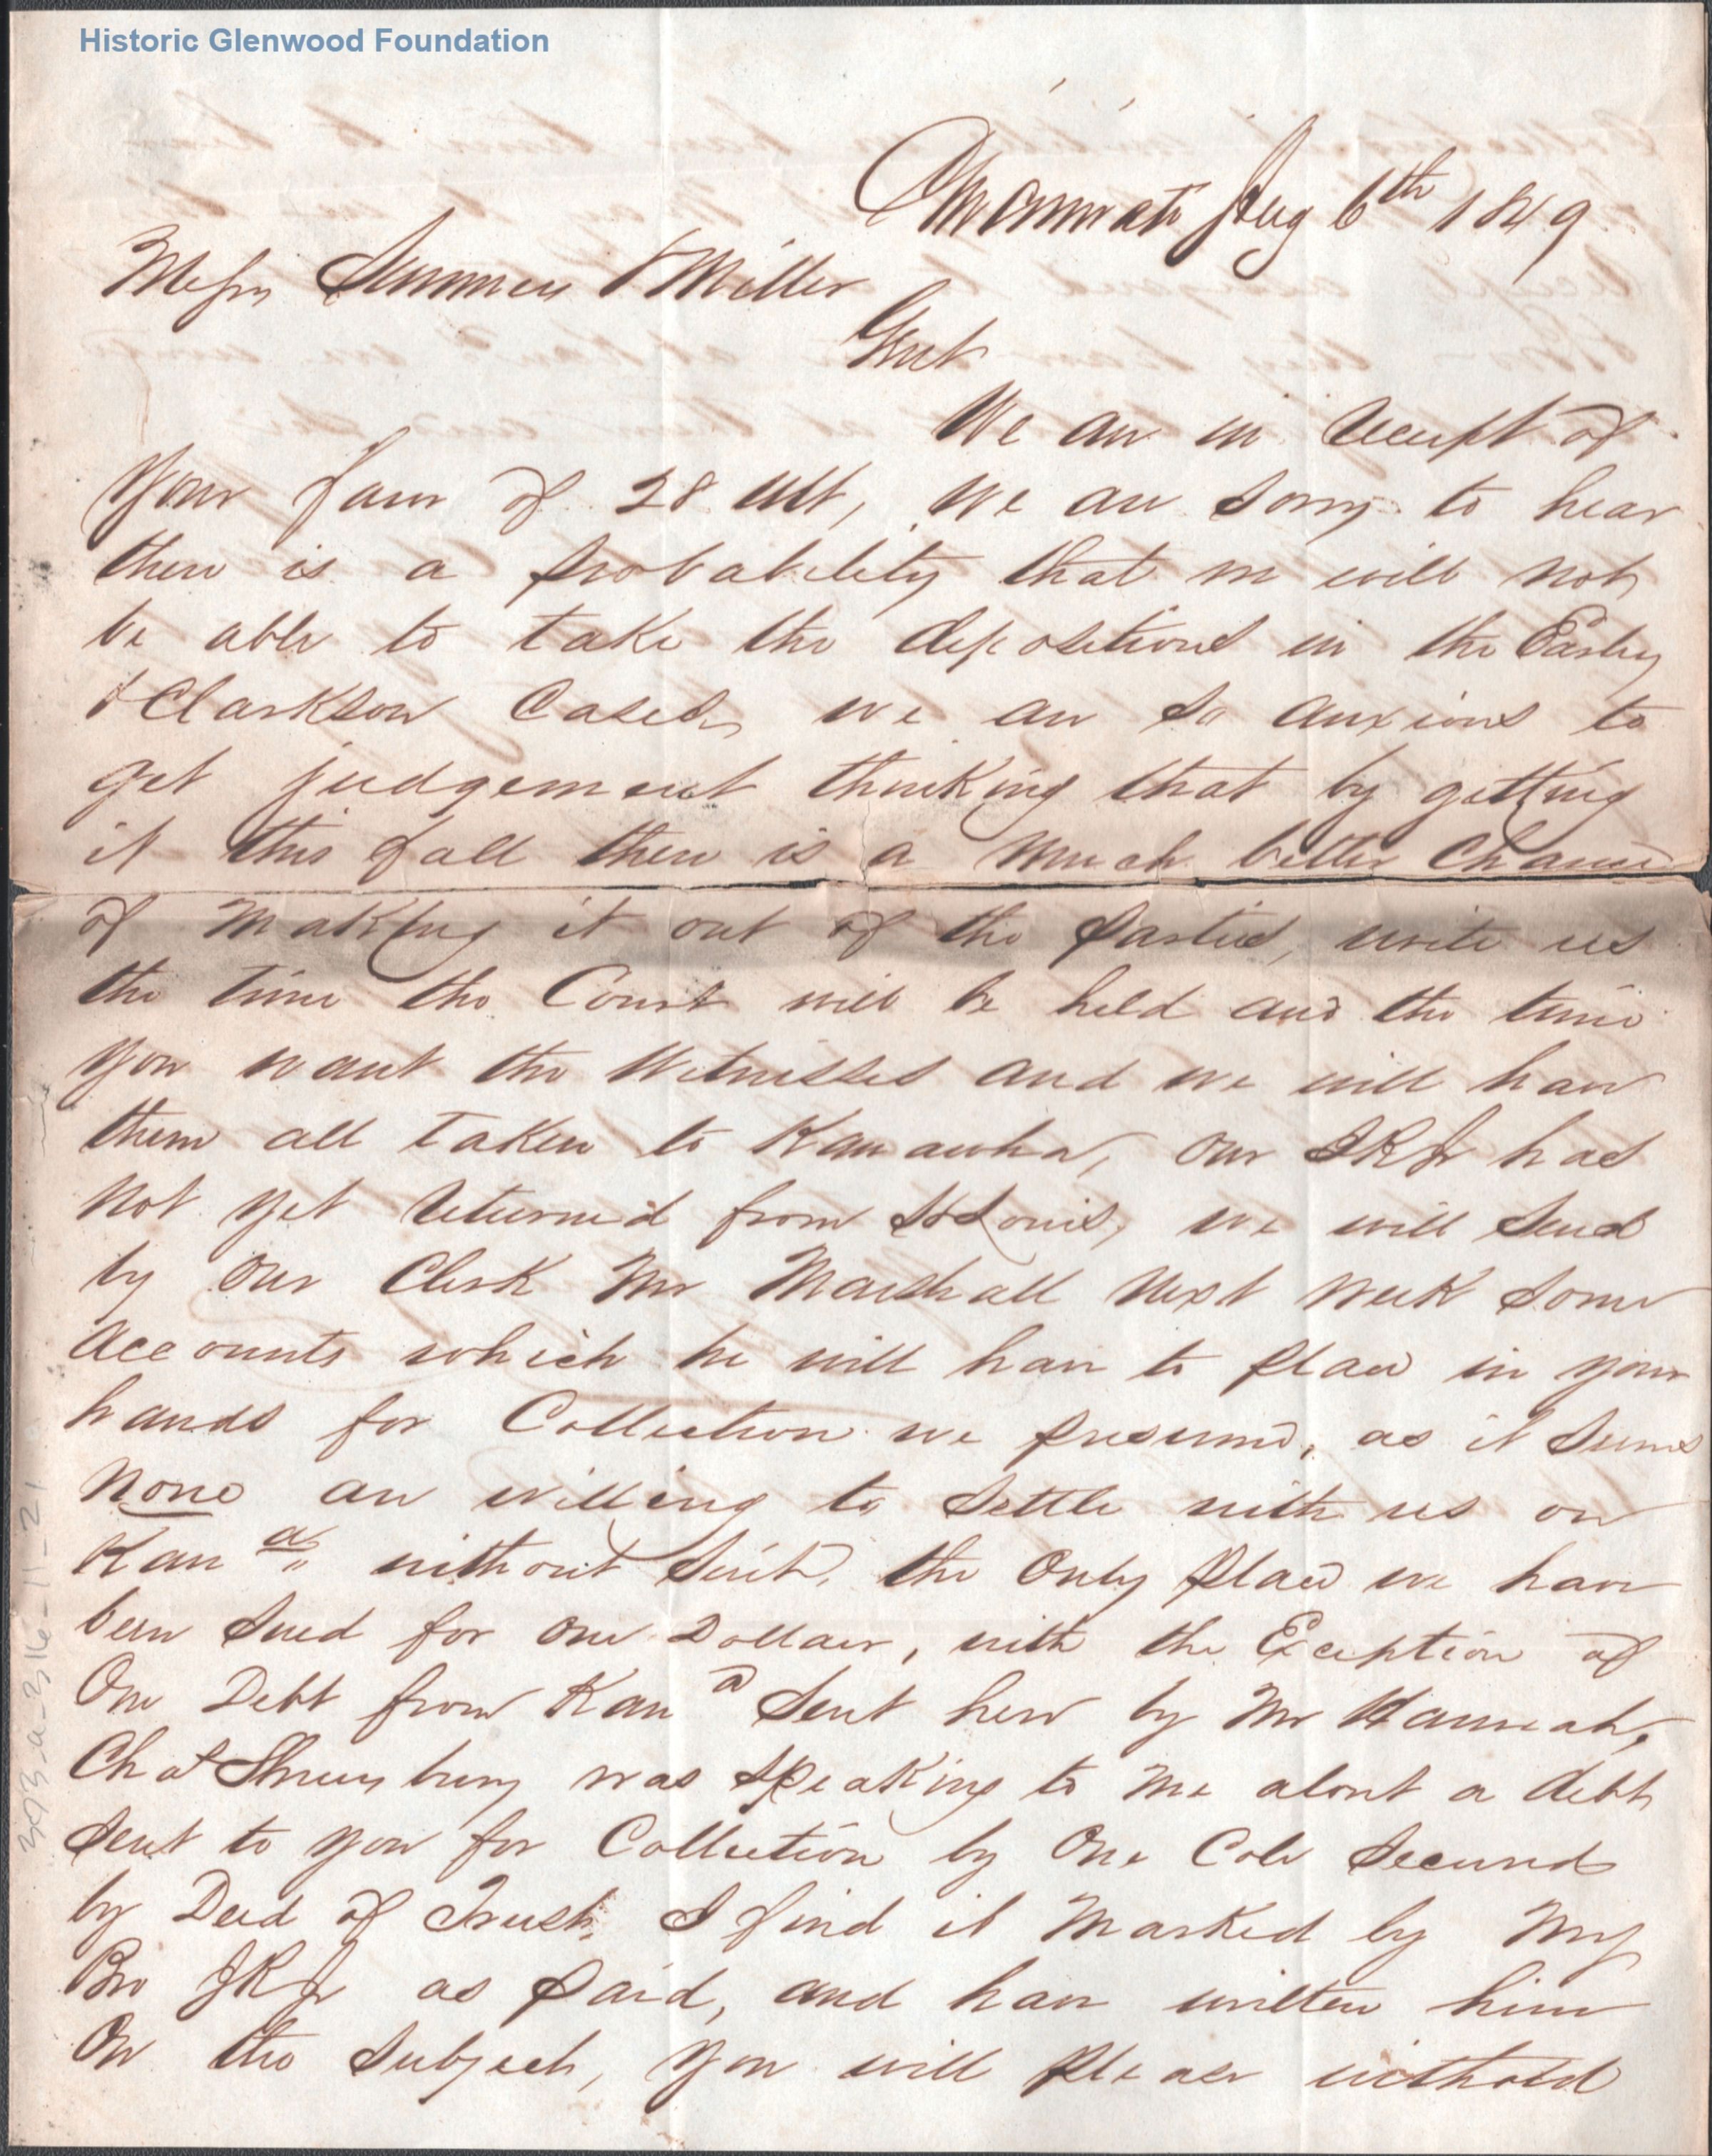 Historic Glenwood Foundation
Cincinnati Aug 6th 1849
Messrs Summers & Miller
Gent
We are in receipt of
your favr of 28 ult, We are sorry to hear
there is a probability that we will not
be able to take the depositions in the Easley
& Clarkson Cases, we are so anxious to
get judgement thinking that by getting
it this fall there is a much better chance
of making it out of the parties, write us
the time the Court will be held and the time
you want the Witnesses and we will have
them all taken to Kanawha, our JRJr has
not yet returned from St Louis, we will send
by our Clerk Mr Marshall next week some
accounts which he will have to place in your
hands for Collection we presume, as it seems
none are willing to settle with us on
Kan a without suit, the only place we have
been sued for one Dollar, with the Exception of
One Debt from Kan a sent here by Mr Hannah,
Chas Shrewsbury was speaking to me about a debt
sent to you for Collection by One Cole secured
by Deed of Trust, I find it marked by my
Bro JRJr as paid, and have written him
On the subject, you will please withold
303-a-316-11-21